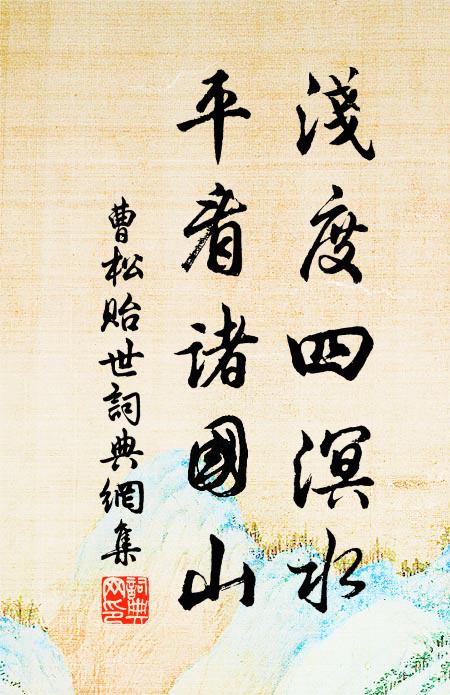 淺度四溟水
平看諸國山
曹松貽世詞典網集
詞典網印